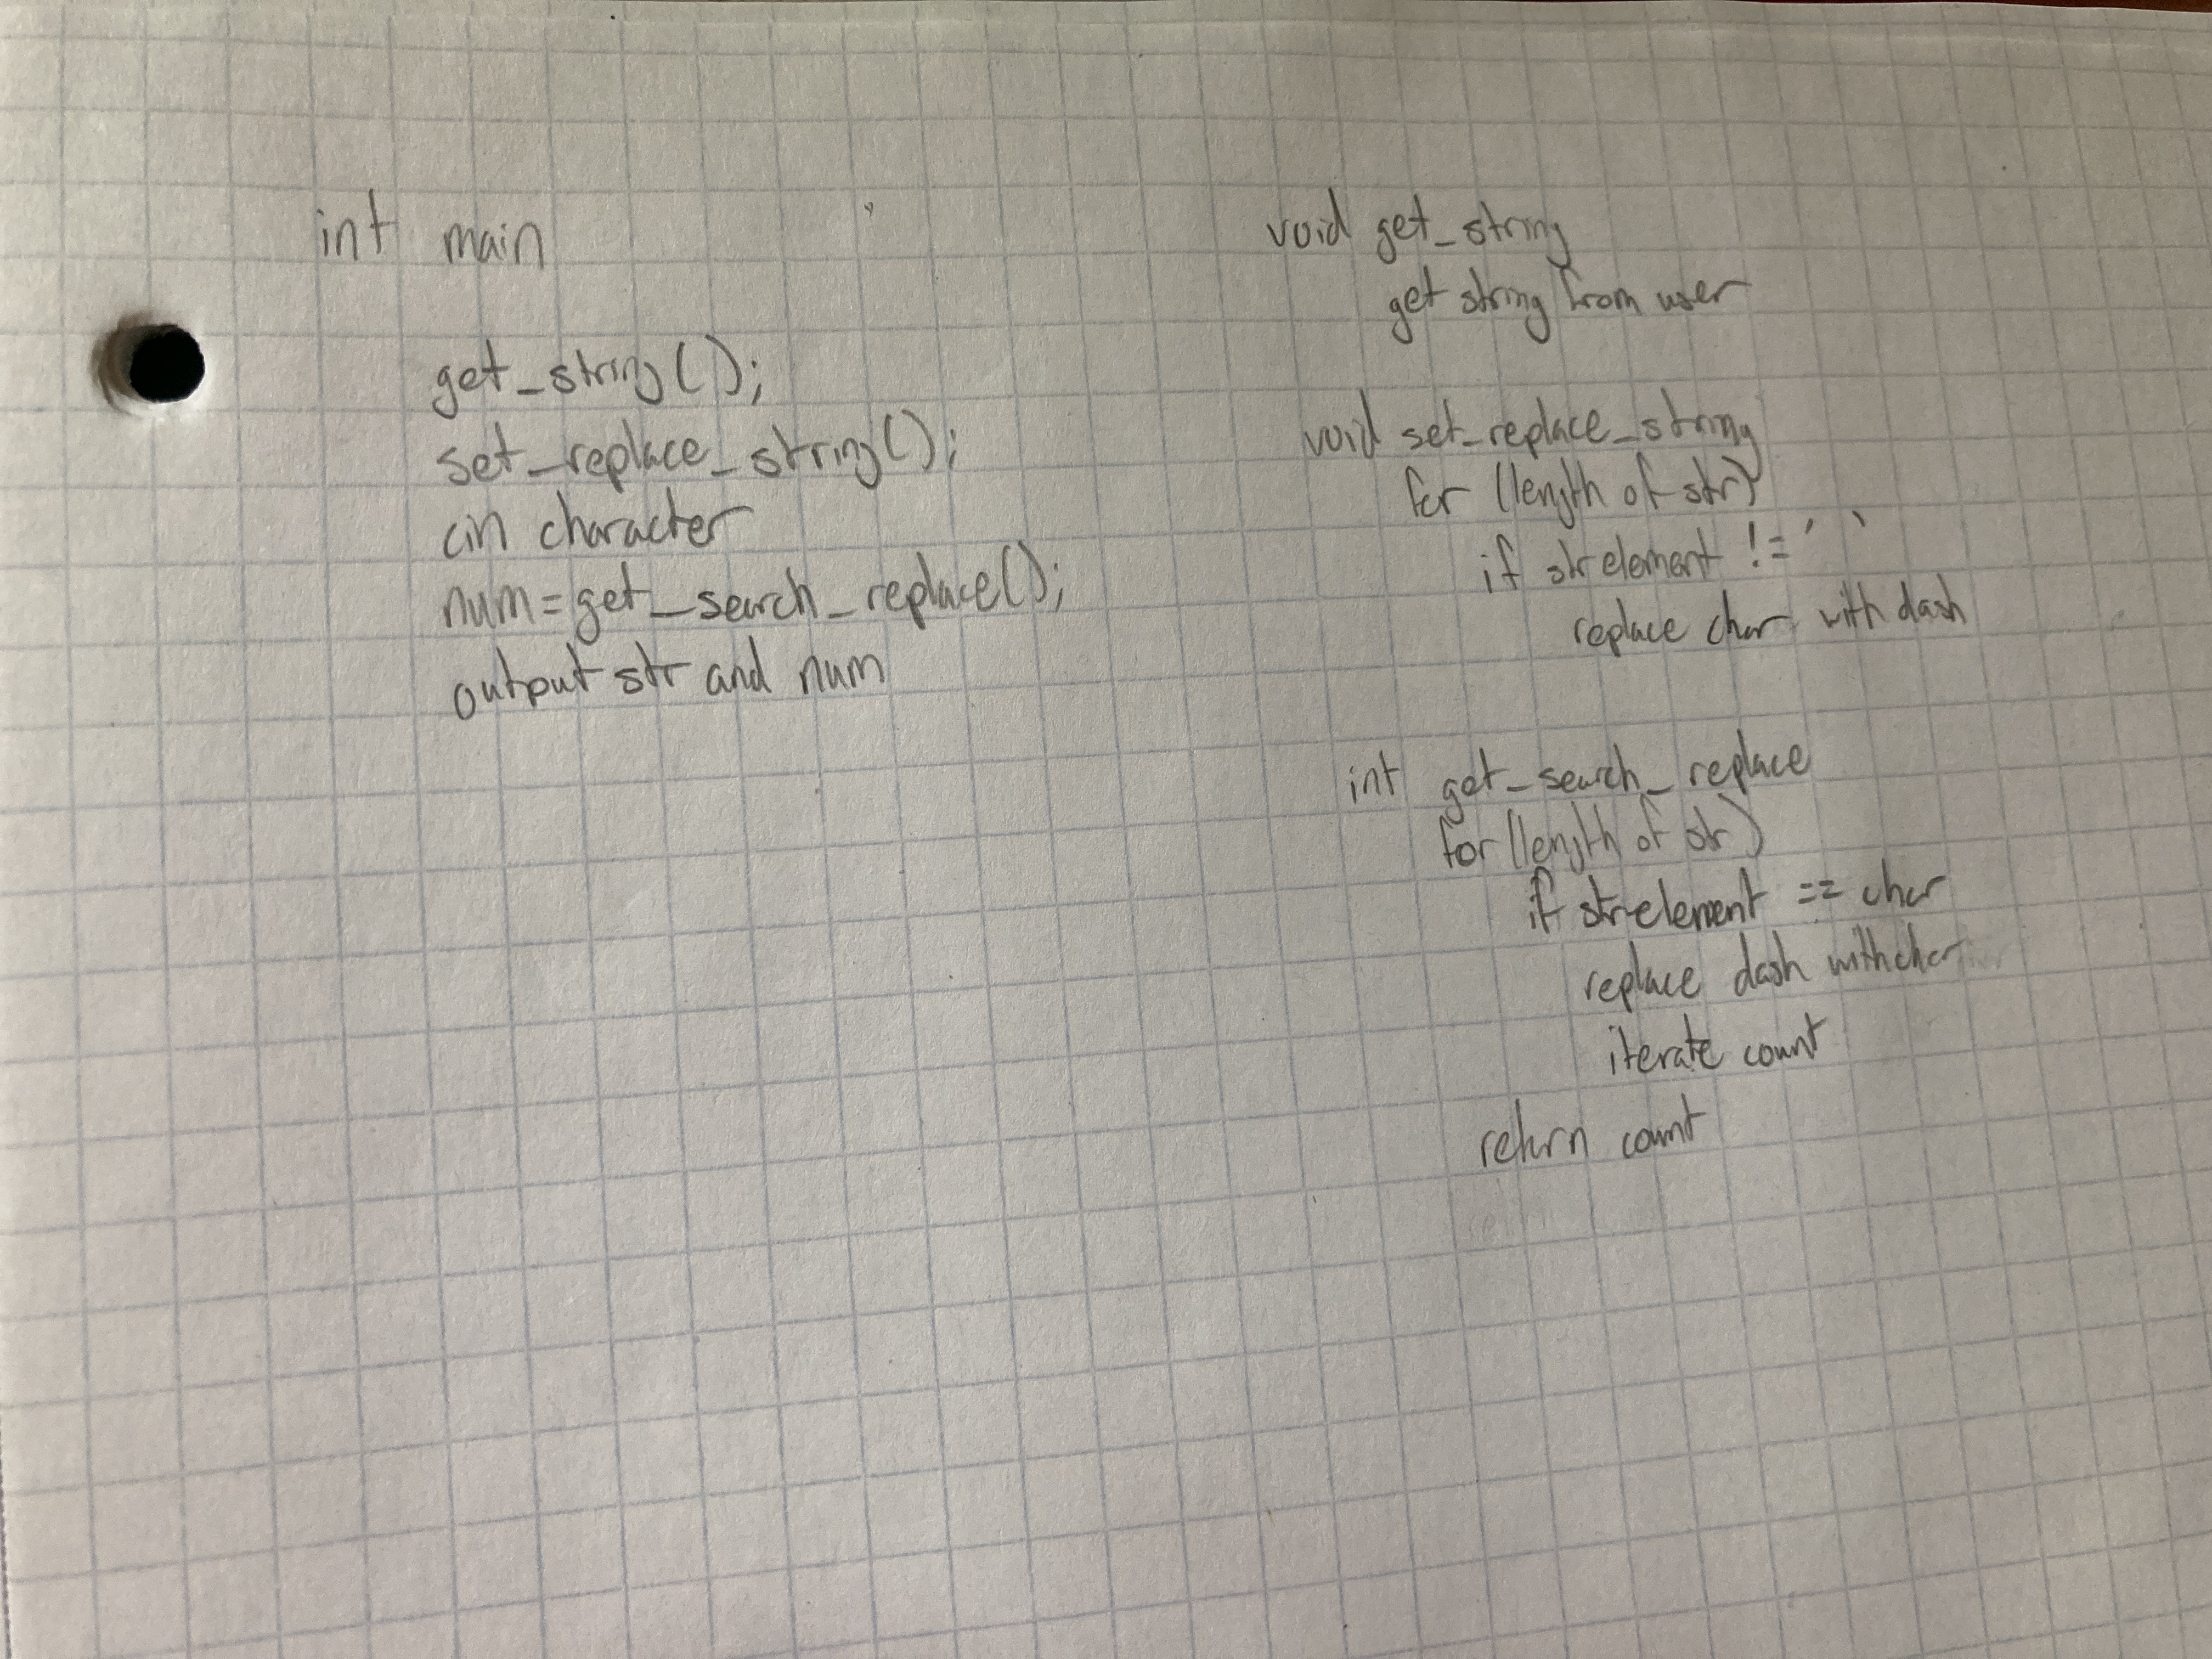 int main
get_string();
set_replace_string();
cin character
num=get_search_replace();
output str and num
void get_string
get string from user
void set_replace_string
for (length of str)
if str element != ' '
replace char with dash
int get_search_replace
for (length of str)
if str element == char
replace dash with char
iterate count
return count